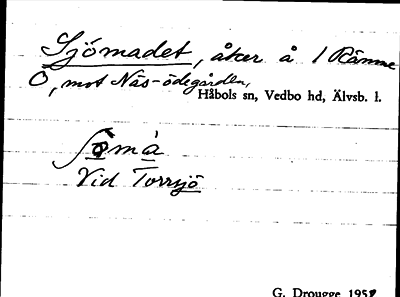 Sjömadet, åker å 1 Rämne
Ö, mot Näs-ödegården,
Håbols sn, Vedbo hd, Älvsb. l.
Vid Torrsjö
G. Drougge 1951